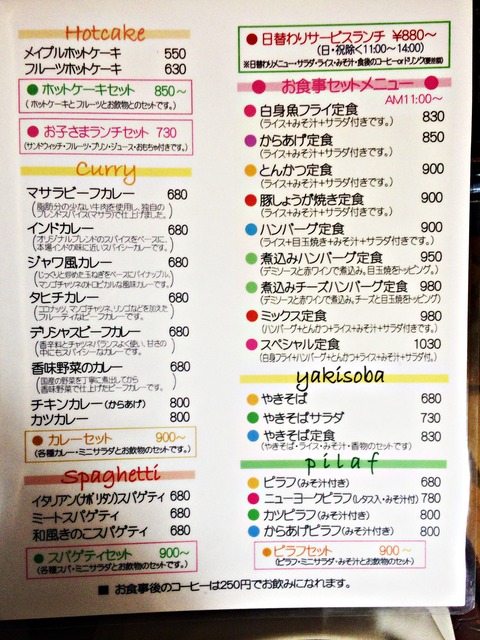 Hotcake
メイプルホットケーキ 550
フルーツホットケーキ 630
●ホットケーキセット 850～
(ホットケーキとフルーツとお飲物とのセットです。)
●お子さまランチセット 730
(サンドウィッチ・フルーツ・プリン・ジュース・おもちゃ付きです。)
Curry
マサラビーフカレー 680
(脂肪分の少ない牛肉を使用し、独自の
ブレンドスパイス(マサラ)で仕上げました。)
インドカレー 680
(オリジナルブレンドのスパイスをベースに、
本場インドの味に近いスパイシーカレーです。)
ジャワ風カレー 680
(じっくりと炒めた玉ねぎをベースにパイナップル、
マンゴチャツネのトロピカルな風味のカレーです。)
タヒチカレー 680
(ココナッツ、マンゴチャツネ、リンゴなどを加えた
フルーティなビーフカレーです。)
デリシャスビーフカレー 680
(香辛料とチャツネバランスよく使い、甘さの
中にもスパイシーなカレーです。)
香味野菜のカレー 680
(国産の野菜を丁寧に煮出してから
香味野菜で仕上げたビーフカレーです。)
チキンカレー(からあげ) 800
カツカレー 800
●カレーセット 900～
(各種カレー・ミニサラダとお飲物のセットです。)
Spaghetti
イタリアン(ナポリタン)スパゲティ 680
ミートスパゲティ 680
和風きのこスパゲティ 680
●スパゲティセット 900～
(各種スパ・ミニサラダとお飲物のセットです。)
●日替わりサービスランチ ¥880～
(日・祝除く11:00～14:00)
※日替わりメニュー・サラダ・ライス・みそ汁・食後のコーヒーorドリンク(要差額)
●お食事セットメニュー●
AM11:00～
●白身魚フライ定食 830
(ライス+みそ汁+サラダ付きです。)
●からあげ定食 850
(ライス+みそ汁+サラダ付きです。)
●とんかつ定食 900
(ライス+みそ汁+サラダ付きです。)
●豚しょうが焼き定食 900
(ライス+みそ汁+サラダ付きです。)
●ハンバーグ定食 900
(ライス+目玉焼き+みそ汁+サラダ付きです。)
●煮込みハンバーグ定食 950
(デミソースと赤ワインで煮込み。目玉焼をトッピング。)
●煮込みチーズハンバーグ定食 980
(デミソースと赤ワインで煮込み。チーズと目玉焼トッピング)
●ミックス定食 980
(ハンバーグ+とんかつ+ライス+みそ汁+サラダ付きです。)
●スペシャル定食 1030
(白身フライ+ハンバーグ+とんかつ+ライス+みそ汁+サラダ付。)
yakisoba
●やきそば 680
●やきそばサラダ 730
●やきそば定食 830
(やきそば・ライス・みそ汁・香物のセットです)
pilaf
●ピラフ(みそ汁付き) 680
●ニューヨークピラフ(レタス入・みそ汁付) 780
●カツピラフ(みそ汁付き) 800
●からあげピラフ(みそ汁付き) 800
●ピラフセット 900～
(ピラフ・ミニサラダ・みそ汁とお飲物のセット)
■お食事後のコーヒーは250円でお飲みになれます。